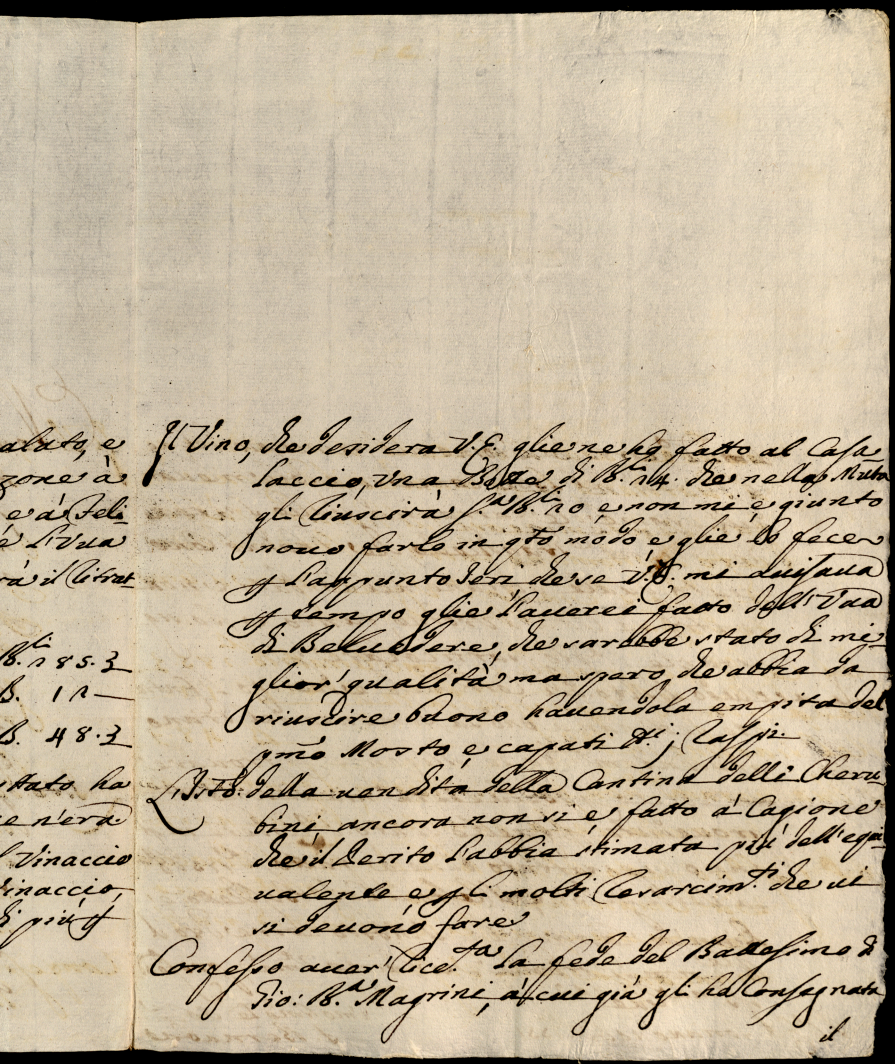 alato, e
zone à
e à Feli-
è l'Vua
rà il litrat
B.li 185.3
B. 12 —
B. 48.3
ttato ha
ce n'era
l Vinaccio
Vinaccio,
di più p
Il Vino, che desidera V.E. glie ne ho fatto al Casa
laccio, vna Botte di B.li 24. che nella Muta
gli riuscirà s.a B.li 20 e non mi è giunto
nouo farlo in q.to modo e glie lo fece
p l'appunto Ieri che se V.E. mi auisaua
p tempo glie l'auerei fatto dell'Vua
di Beluedere, che sarebbe stato di mi-
glior' qualità, ma spero, che abbia da
riuscire buono hauendola empita del
p.mo Mosto, e capati i Raspi
L'Ist.o della uendita della Cantina delli Cheru-
bini ancora non si è fatto à Cagione
che il Perito l'abbia stimata più dell'equi
ualente e p li molti resarcim.ti che ui
si deuono fare
Confesso auer' rice.ta la fede del Battesimo di
Gio: B.a Magrini, à cui già gli ho Consegnata
il